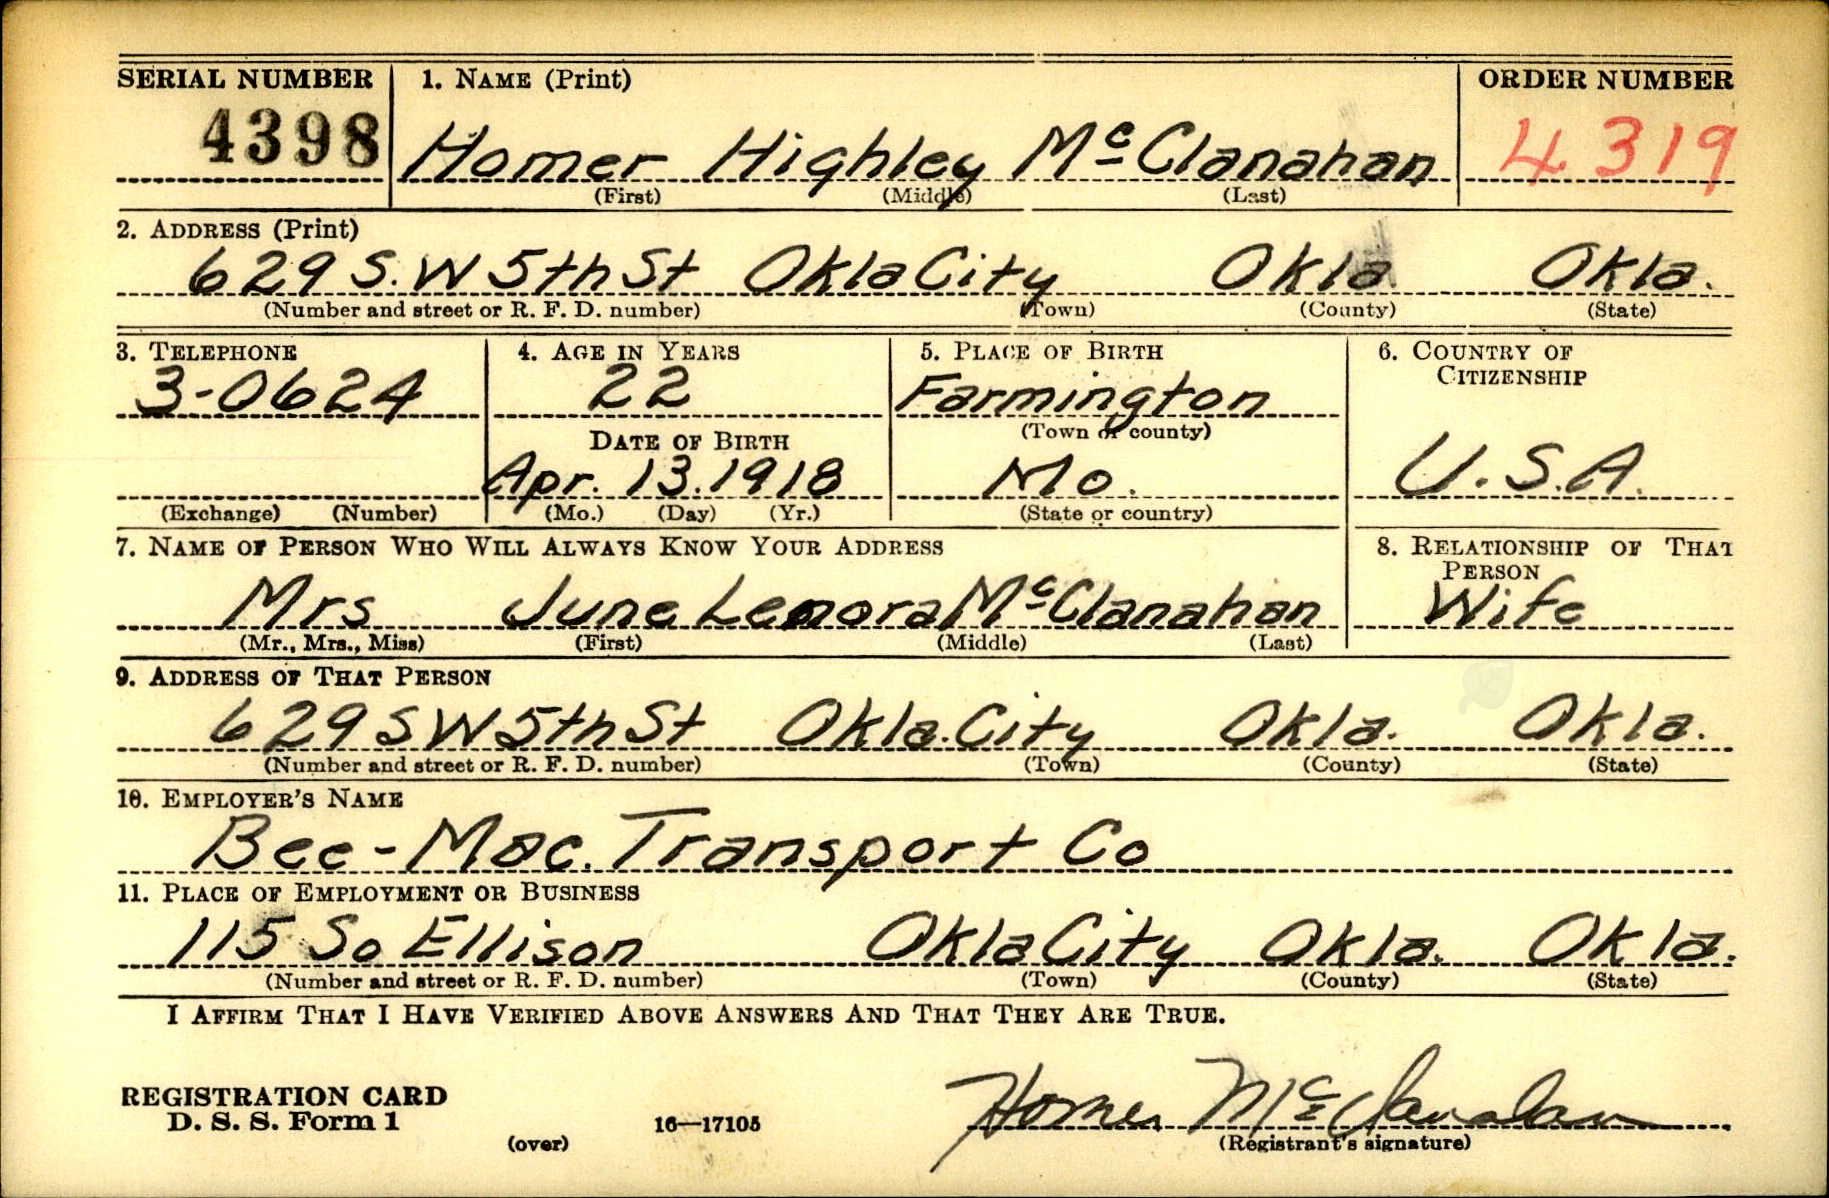 SERIAL NUMBER 1. NAME (Print) ORDER NUMBER
4398 Homer Highley McClanahan 4319
(First) (Middle) (Last)
2. ADDRESS (Print)
629 S. W 5th St Okla City Okla Okla.
(Number and street or R. F. D. number) (Town) (County) (State)
3. TELEPHONE 4. AGE IN YEARS 5. PLACE OF BIRTH 6. COUNTRY OF CITIZENSHIP
3-0624 22 Farmington
DATE OF BIRTH (Town or county)
Apr. 13. 1918 Mo. U.S.A.
(Exchange) (Number) (Mo.) (Day) (Yr.) (State or country)
7. NAME OF PERSON WHO WILL ALWAYS KNOW YOUR ADDRESS 8. RELATIONSHIP OF THAT PERSON
Mrs June Lenora McClanahan Wife
(Mr., Mrs., Miss) (First) (Middle) (Last)
9. ADDRESS OF THAT PERSON
629 S W 5th St Okla. City Okla. Okla.
(Number and street or R. F. D. number) (Town) (County) (State)
10. EMPLOYER'S NAME
Bee-Mac. Transport Co
11. PLACE OF EMPLOYMENT OR BUSINESS
115 So Ellison Okla City Okla. Okla.
(Number and street or R. F. D. number) (Town) (County) (State)
I AFFIRM THAT I HAVE VERIFIED ABOVE ANSWERS AND THAT THEY ARE TRUE.
REGISTRATION CARD
D. S. S. Form 1 16—17105 Homer McClanahan
(over) (Registrant's signature)